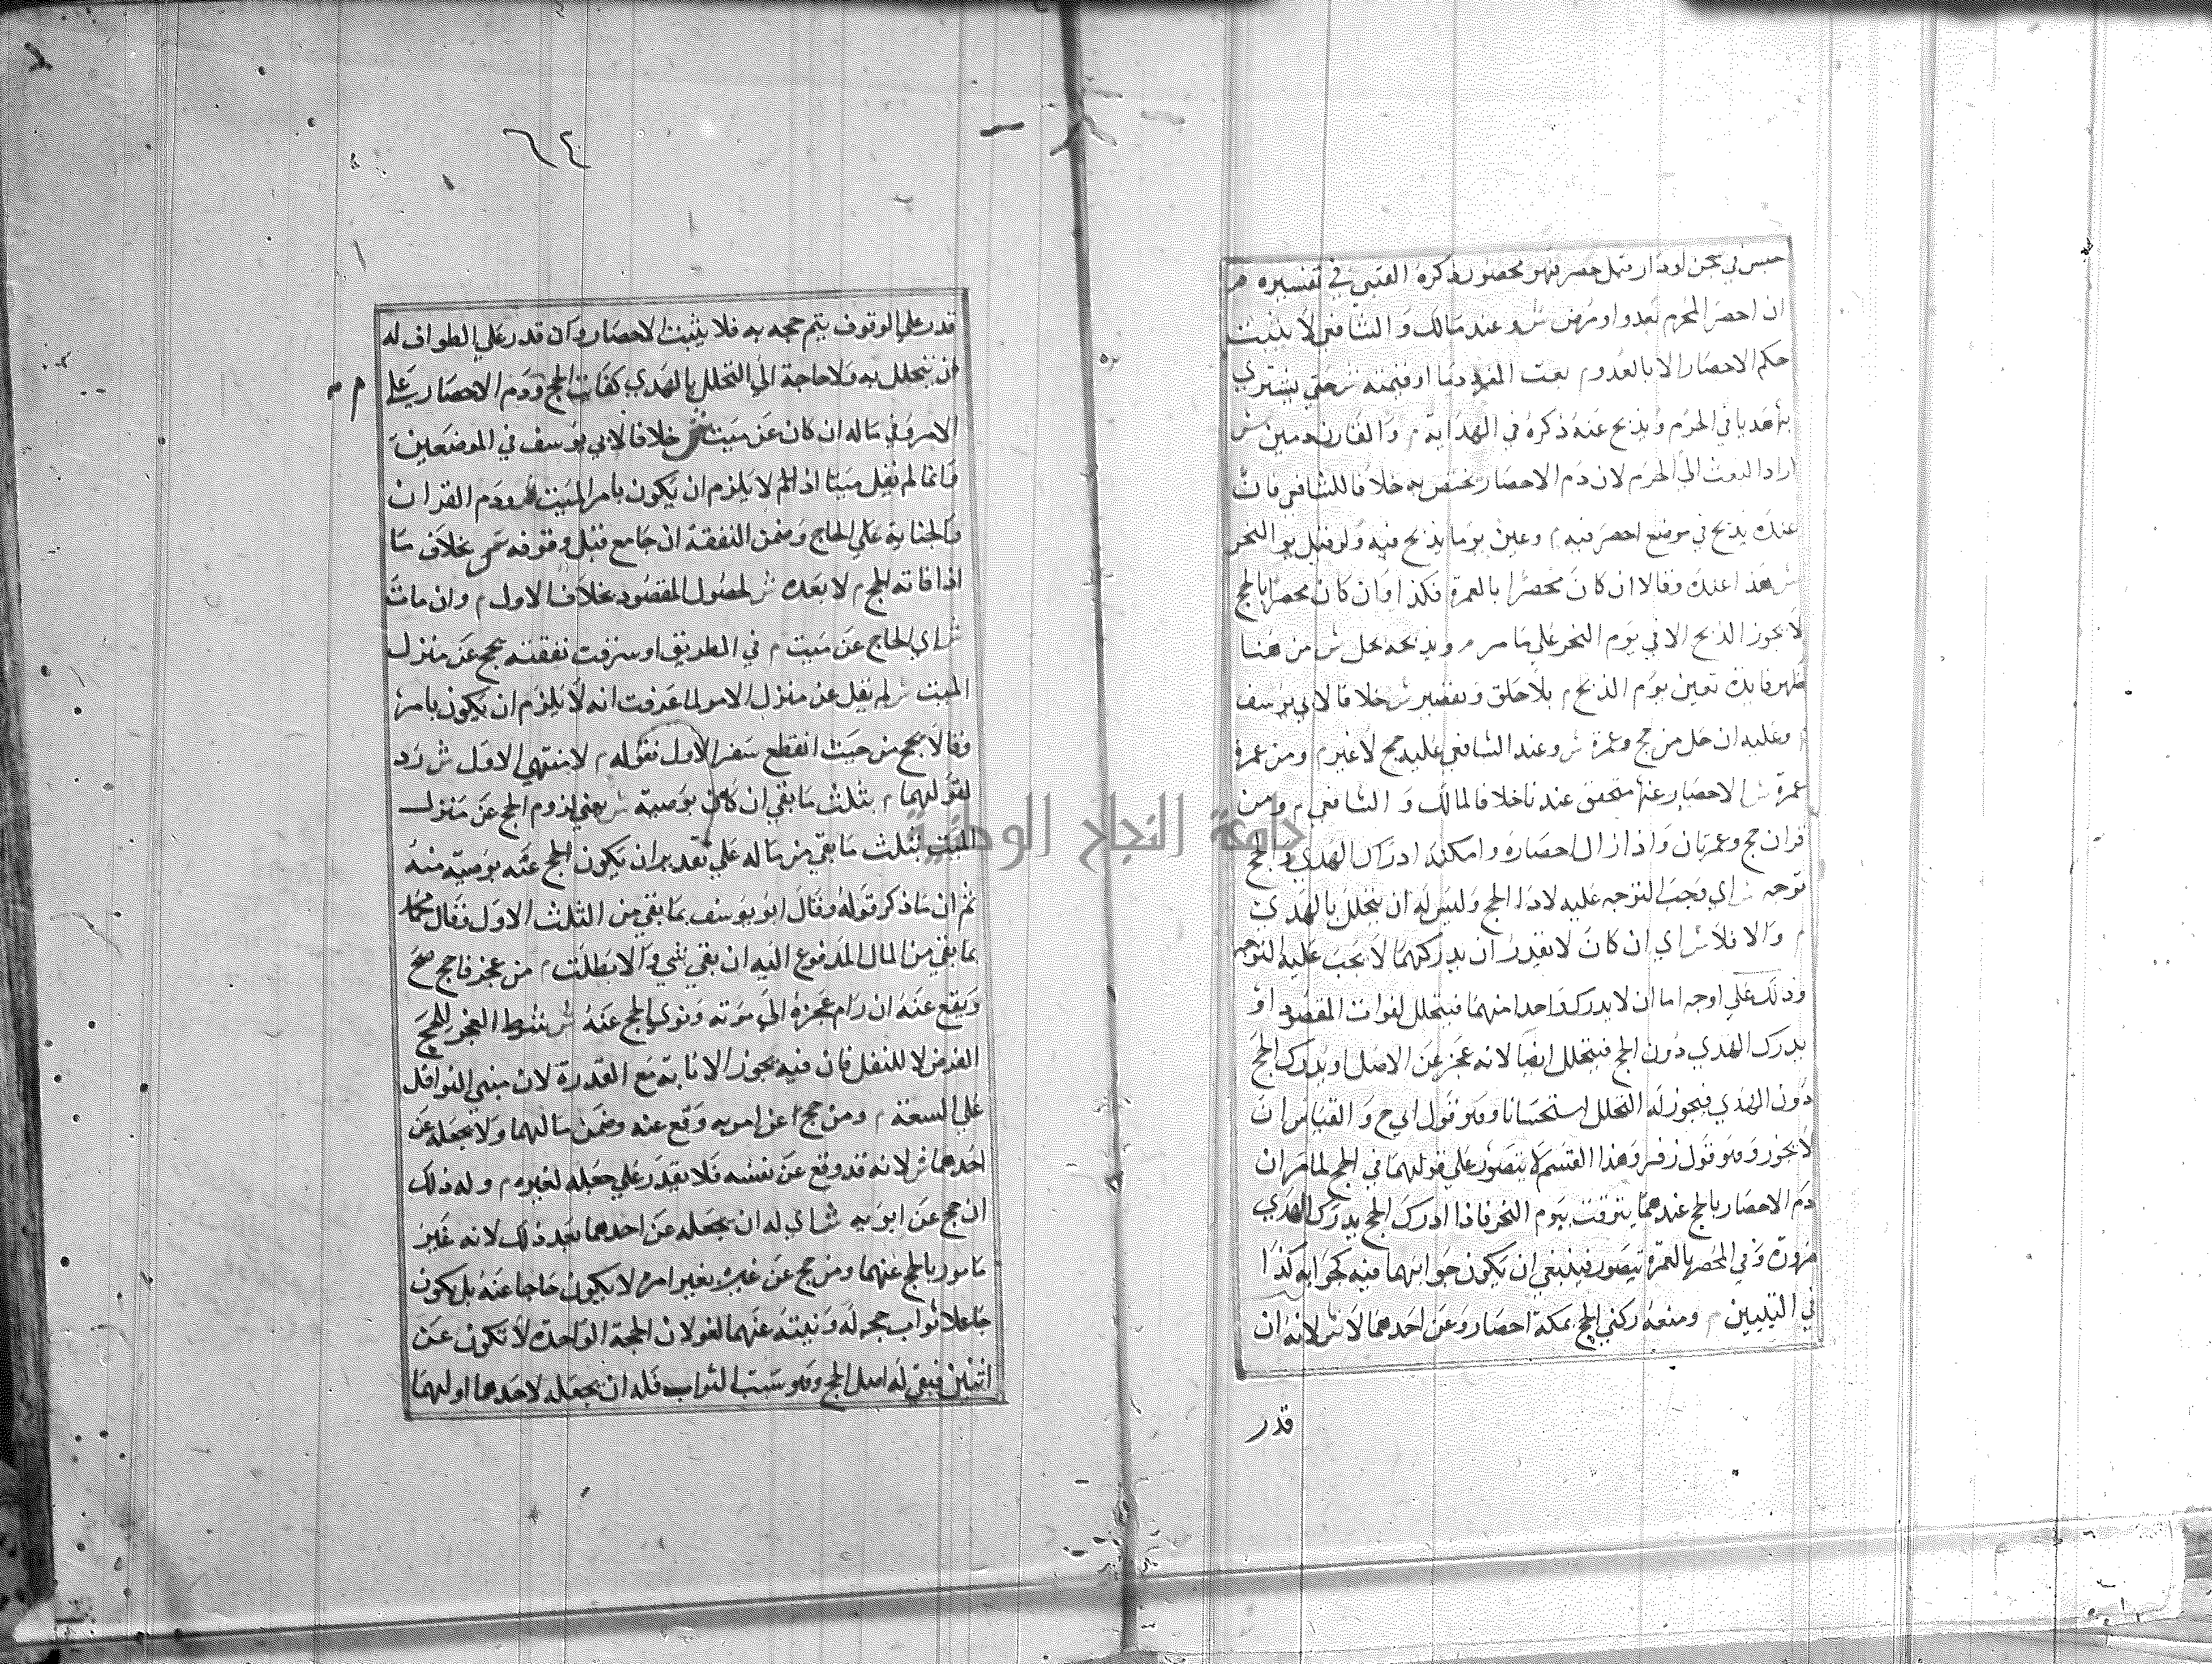 حبس في سجن او دار قيل حصر فهو محصور ذكره القتبي في تفسيره م
ان احصر المحرم بعدو او مرض ش وعند مالك و الشافعي لا يثبت
حكم الاحصار الا بالعدو م بعث المفرد دما او قيمته ش حتى يشتري
بها هديا في الحرم ويذبح عنه ذكره في الهداية م والقارن دمين ش
اراد البعث الي الحرم لان دم الاحصار يختص به خلافا للشافعي فان
عنده يذبح في موضع احصر فيه م وعين يوما يذبح فيه ولو قبل يوم النحر
ش هذا عنده وقالا ان كان محصرا بالعمرة فكذا وان كان محصرا بالحج
لا يجوز الذبح الا في يوم النحر علي ما مر م وبذبحه يحل ش من هنا
ظهر فايدة تعين يوم الذبح م بلا حلق وتقصير ش خلافا لابي يوسف
م وعليه ان حل من حج حج وعمرة ش وعند الشافعي عليه حج لا غير م ومن عمرة
عمرة ش الاحصار عنها متحقق عندنا خلافا لمالك و الشافعي م ومن
قران حج وعمرتان واذا زال احصاره وامكنه ادراك الهدي والحج
توجه ش اي وجب التوجه عليه لاداء الحج وليس له ان يتحلل بالهدي
م والا فلا ش اي ان كان لا يقدر ان يدركهما لا يجب عليه التوجه
وذلك علي اوجه اما ان لا يدرك واحدا منهما فيتحلل لفوات المقصود او
يدرك الهدي دون الحج فيتحلل ايضا لانه عجز عن الاصل او يدرك الحج
دون الهدي فيجوز له التحلل استحسانا وهو قول ابي ح و القياس ان
لا يجوز وهو قول زفر وهذا القسم لا يتصور علي قولهما في الحج لما مر ان
دم الاحصار بالحج عندهما يتوقت بيوم النحر فاذا ادرك الحج يدرك الهدي
ضرورة وفي المحصر بالعمرة يتصور فينبغي ان يكون جوابهما فيه كجوابه وكذا
في م ومنعه ركني الحج بمكة احصار وعن احدهما لا ش لانه ان
قدر
٦٤
قدر علي الوقوف يتم حجه به فلا يثبت الاحصار وان قدر علي الطواف له
ان يتحلل به ولا حاجة الي التحلل بالهدي كفائت الحج م ودم الاحصار علي
الامر وفي ماله ان كان عن ميت ش خلافا لابي يوسف في الموضعين
وانما لم يقل ميتا اذ الحج لا يلزم ان يكون بامر الميت م ودم القران
والجناية علي الحاج وضمن النفقة ان جامع قبل وقوفه ش بخلاف ما
اذا فاته الحج م لا بعده ش لحصول المقصود بخلاف الاول م وان مات
ش اي الحاج عن ميت م في الطريق او سرقت نفقته يحج عن منزل
الميت ش لم يقل عن منزل الامر لما عرفت انه لا يلزم ان يكون بامره
وقالا يحج من حيث انقطع سفر الاول فقوله م لا منتهي الاول ش رد
لقولهما م بثلث ما بقي ان كان بوصية ش يعني لزوم الحج عن منزل
الميت بثلث ما بقي من ماله علي تقدير ان يكون الحج عنه بوصية منه
ثم ان ما ذكر قوله وقال ابو يوسف بما بقي من الثلث الاول وقال محمد
بما بقي من المال المدفوع اليه ان بقي شي والا بطلت م من عجز فاحج صح
ويقع عنه ان دام عجزه الي موته ونوي الحج عنه ش شرط العجز للحج
الفرض لا للنفل فان فيه يجوز الانابة مع القدرة لان مبني النوافل
علي السعة م ومن حج عن امريه وقع عنه وضمن مالهما ولا يجعله عن
احدهما ش لانه قد وقع عن نفسه فلا يقدر علي جعله لغيره م وله ذلك
ان حج عن ابويه ش اي له ان يجعله عن احدهما بعد ذلك لانه غير
مامور بالحج عنهما ومن حج عن غيره بغير امره لا يكون حاجا عنه بل يكون
جاعلا ثواب حجه له ونيته عنهما لغو لان الحجة الواحدة لا تكون عن
اثنين فبقي له اصل الحج وهو سبب الثواب فله ان يجعله لاحدهما او لهما
جامعة النجاح الوطنية